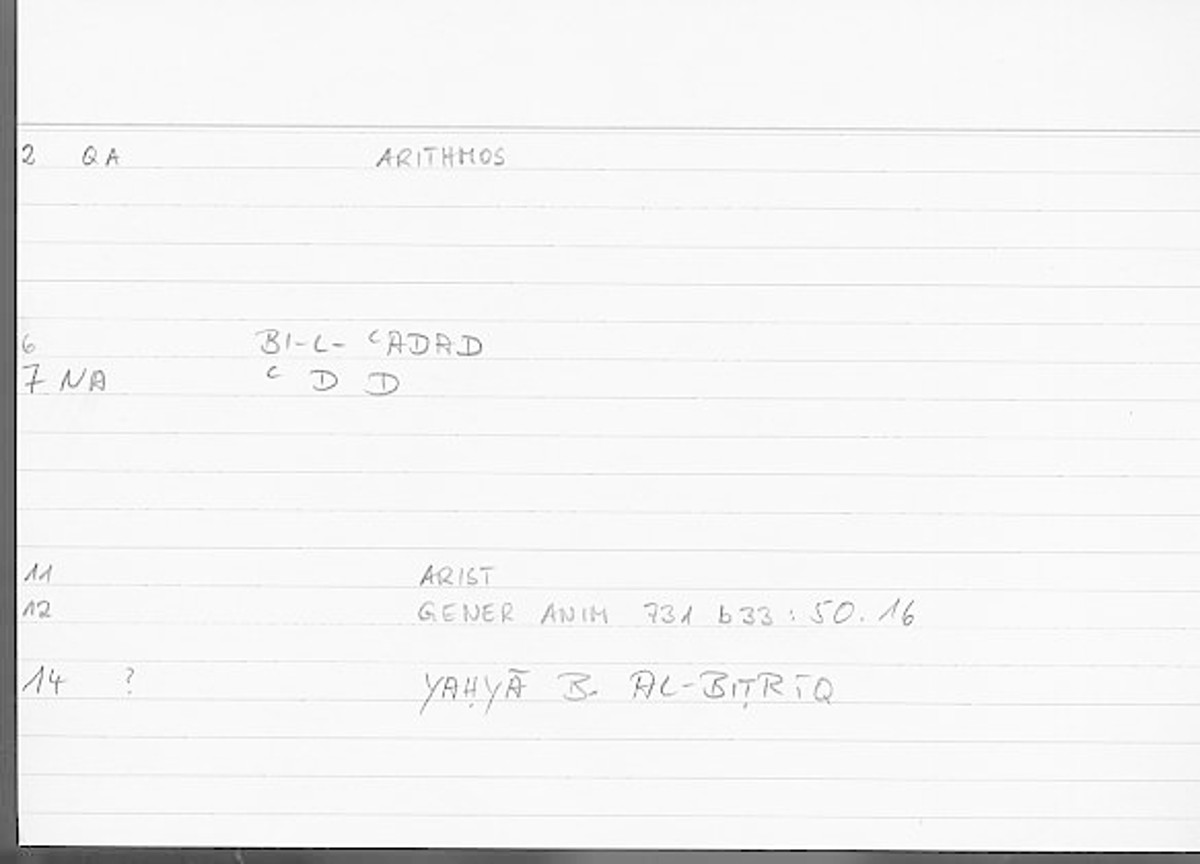 2 QA ARITHMOS
6 BI-L- ʿADAD
7 NA ʿ D D
11 ARIST
12 GENER ANIM 731 b33 : 50. 16
14 ? YAḤYĀ B. AL-BIṬRĪQ